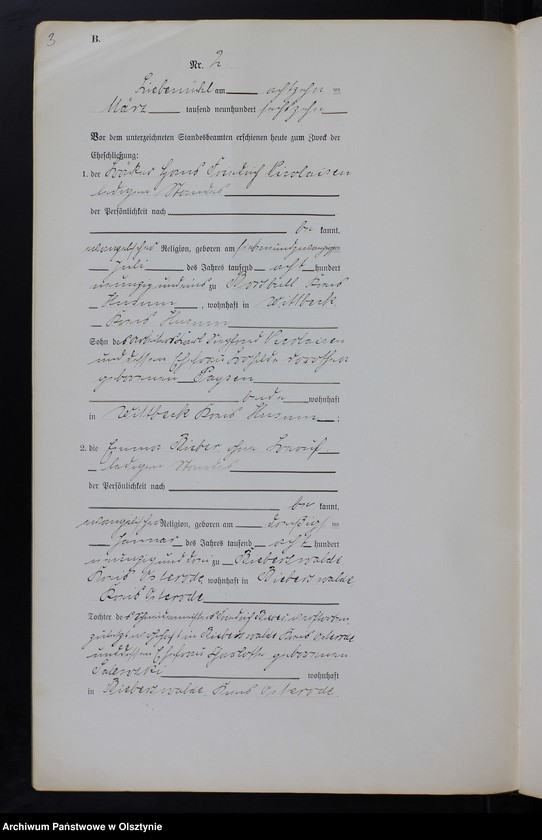 3
B.
Nr. 2
Liebemühl am achtzehn ten
März tausend neunhundert sechszehn
Vor dem unterzeichneten Standesbeamten erschienen heute zum Zweck der
Eheschließung:
1. der Hans Friedrich Nicolaisen
ledigen Standes
der Persönlichkeit nach
be kannt,
evangelischer Religion, geboren am siebenundzwanzigsten
Juli des Jahres tausend acht hundert
neunzig und eins zu Kreis
Husum, wohnhaft in Wittbek
Kreis Husum
Sohn des Nicolaisen
und dessen Ehefrau Dorothea
geborenen Paysen
beide wohnhaft
in Wittbek Kreis Husum;
2. die Emma Rieber, ohne Beruf,
ledigen Standes
der Persönlichkeit nach
be kannt,
evangelischer Religion, geboren am dreißig ten
Januar des Jahres tausend acht hundert
neunzig und drei zu Bieberswalde
Kreis Osterode, wohnhaft in Bieberswalde,
Kreis Osterode
Tochter des Schneidermeisters Friedrich verstorben
zuletzt wohnhaft in Bieberswalde Kreis Osterode
und dessen Ehefrau Charlotte geborenen
wohnhaft
in Bieberswalde, Kreis Osterode.
Archiwum Państwowe w Olsztynie